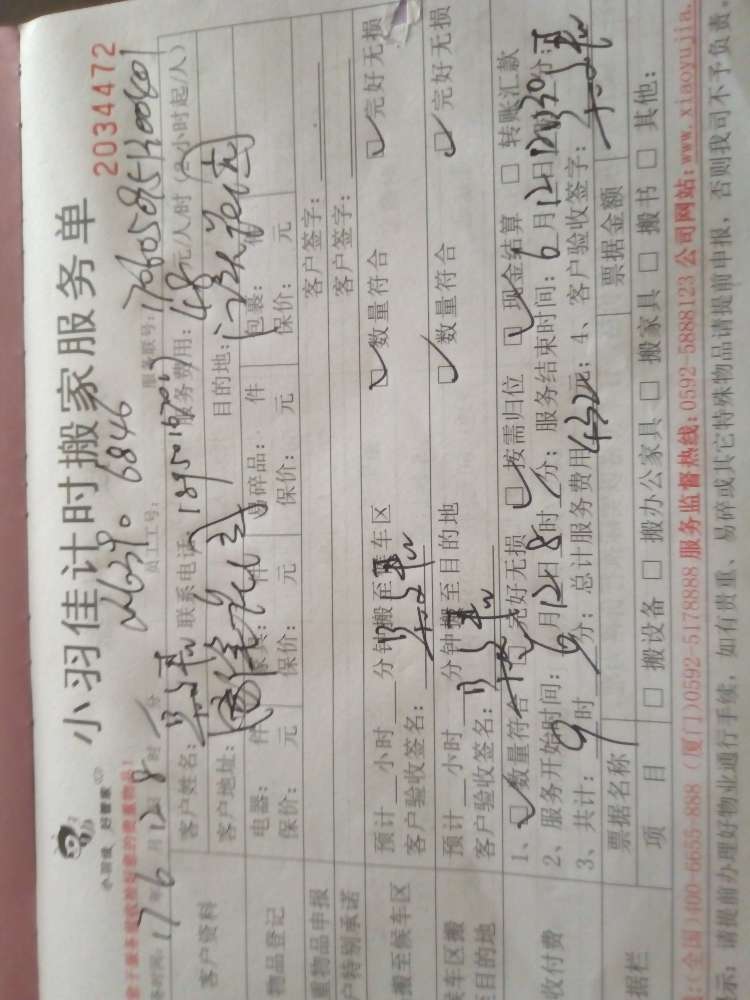 小羽佳计时搬家服务单
2034472
小羽佳 好管家
17年6月12日8时 分
员工工号: 6846
服务联号: 1706058512000801
客户资料
客户姓名:
联系电话:
服务费用: 48元/人/时 (2小时起/人)
客户地址:
目的地:
物品登记
电器: 件 家具: 件 易碎品: 件 包裹:
保价: 元 保价: 元 保价: 元 保价: 元
重物品申报
客户签字:
户特别承诺
客户签字:
搬至候车区
预计 小时 分钟搬至候车区 数量符合 完好无损
客户验收签名:
候车区搬
至目的地
预计 小时 分钟搬至目的地 数量符合 完好无损
客户验收签名:
收付费
1、 数量符合 完好无损 按需归位 现金结算 转账汇款
2、服务开始时间: 6月12日8时 分; 服务结束时间: 6月12日 时30分;
3、共计: 9时 分; 总计服务费用432元; 4、客户验收签字:
据栏
票据名称 票据金额
项 目 搬设备 搬办公家具 搬家具 搬书 其他:
(全国)400-6655-888 (厦门)0592-5178888 服务监督热线:0592-5888123 公司网站:www.xiaoyujia.
示: 请提前办理好物业通行手续, 如有贵重、易碎或其它特殊物品请提前申报, 否则我司不予负责。